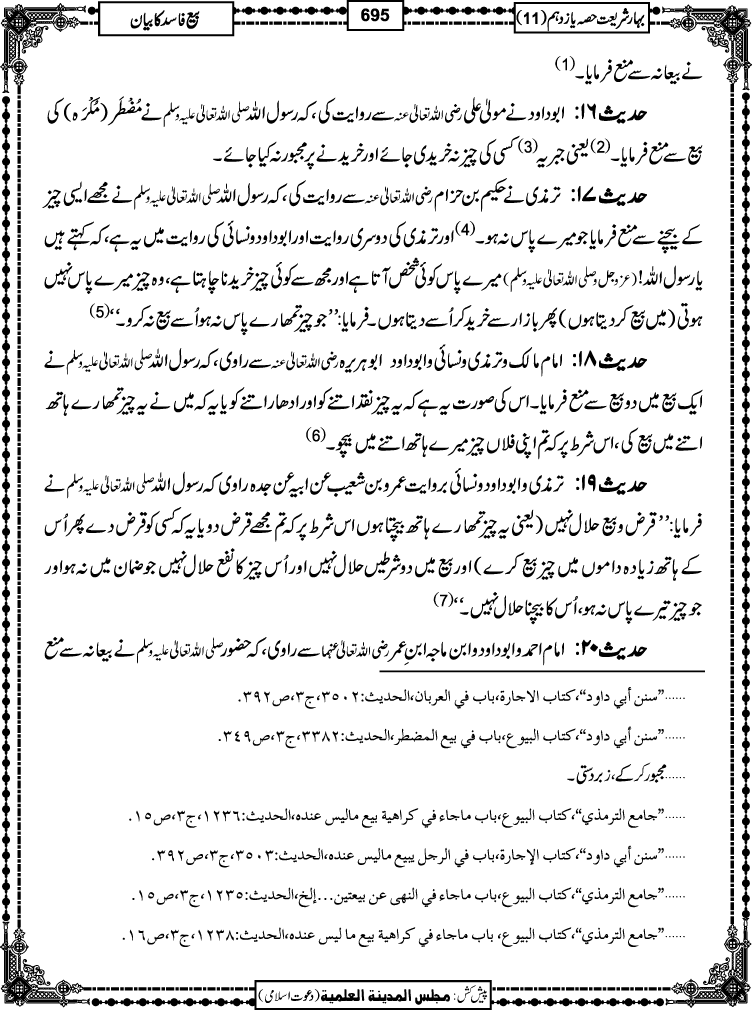 بہار شریعت حصہ یازدہم (11)
695
بیع فاسد کا بیان
نے بیعانہ سے منع فرمایا۔(1)
حدیث ۱۶: ابوداود نے مولیٰ علی رضی اللہ تعالیٰ عنہ سے روایت کی، کہ رسول اللہ صلی اللہ تعالیٰ علیہ وسلم نے مُضْطَر (مُکْرَہ) کی
بیع سے منع فرمایا۔(2) یعنی جبریہ(3) کسی کی چیز نہ خریدی جائے اور خریدنے پر مجبور نہ کیا جائے۔
حدیث ۱۷: ترمذی نے حکیم بن حزام رضی اللہ تعالیٰ عنہ سے روایت کی، کہ رسول اللہ صلی اللہ تعالیٰ علیہ وسلم نے مجھے ایسی چیز
کے بیچنے سے منع فرمایا جو میرے پاس نہ ہو۔(4) اور ترمذی کی دوسری روایت اور ابوداود و نسائی کی روایت میں یہ ہے، کہ کہتے ہیں
یا رسول اللہ! (عزوجل وصلی اللہ تعالیٰ علیہ وسلم) میرے پاس کوئی شخص آتا ہے اور مجھ سے کوئی چیز خریدنا چاہتا ہے، وہ چیز میرے پاس نہیں
ہوتی (میں بیع کر دیتا ہوں) پھر بازار سے خرید کر اُسے دیتا ہوں۔ فرمایا: ’’جو چیز تمھارے پاس نہ ہو اُسے بیع نہ کرو۔‘‘(5)
حدیث ۱۸: امام مالک و ترمذی و نسائی و ابوداود ابوہریرہ رضی اللہ تعالیٰ عنہ سے راوی، کہ رسول اللہ صلی اللہ تعالیٰ علیہ وسلم نے
ایک بیع میں دو بیع سے منع فرمایا۔ اس کی صورت یہ ہے کہ یہ چیز نقد اتنے کو اور ادھار اتنے کو یا یہ کہ میں نے یہ چیز تمھارے ہاتھ
اتنے میں بیع کی، اس شرط پر کہ تم اپنی فلاں چیز میرے ہاتھ اتنے میں بیچو۔(6)
حدیث ۱۹: ترمذی و ابوداود و نسائی بروایت عمرو بن شعیب عن ابیہ عن جدہ راوی کہ رسول اللہ صلی اللہ تعالیٰ علیہ وسلم نے
فرمایا: ’’قرض و بیع حلال نہیں (یعنی یہ چیز تمھارے ہاتھ بیچتا ہوں اس شرط پر کہ تم مجھے قرض دو یا یہ کہ کسی کو قرض دے پھر اُس
کے ہاتھ زیادہ داموں میں چیز بیع کرے) اور بیع میں دو شرطیں حلال نہیں اور اُس چیز کا نفع حلال نہیں جو ضمان میں نہ ہو اور
جو چیز تیرے پاس نہ ہو، اُس کا بیچنا حلال نہیں۔‘‘(7)
حدیث ۲۰: امام احمد و ابوداود و ابن ماجہ ابنِ عمر رضی اللہ تعالیٰ عنہما سے راوی، کہ حضور صلی اللہ تعالیٰ علیہ وسلم نے بیعانہ سے منع
......”سنن أبي داود“، كتاب الاجارة، باب في العربان، الحديث: ٣٥٠٢، ج٣، ص٣٩٢.
......”سنن أبي داود“، كتاب البيوع، باب في بيع المضطر، الحديث: ٣٣٨٢، ج٣، ص٣٤٩.
......مجبور کرکے، زبردستی۔
......”جامع الترمذي“، كتاب البيوع، باب ماجاء في كراهية بيع ماليس عنده، الحديث: ١٢٣٦، ج٣، ص١٥.
......”سنن أبي داود“، كتاب الإجارة، باب في الرجل يبيع ماليس عنده، الحديث: ٣٥٠٣، ج٣، ص٣٩٢.
......”جامع الترمذي“، كتاب البيوع، باب ماجاء في النهى عن بيعتين...إلخ، الحديث: ١٢٣٥، ج٣، ص١٥.
......”جامع الترمذي“، كتاب البيوع، باب ماجاء في كراهية بيع ما ليس عنده، الحديث: ١٢٣٨، ج٣، ص١٦.
پیش کش: مجلس المدینة العلمية (دعوت اسلامی)